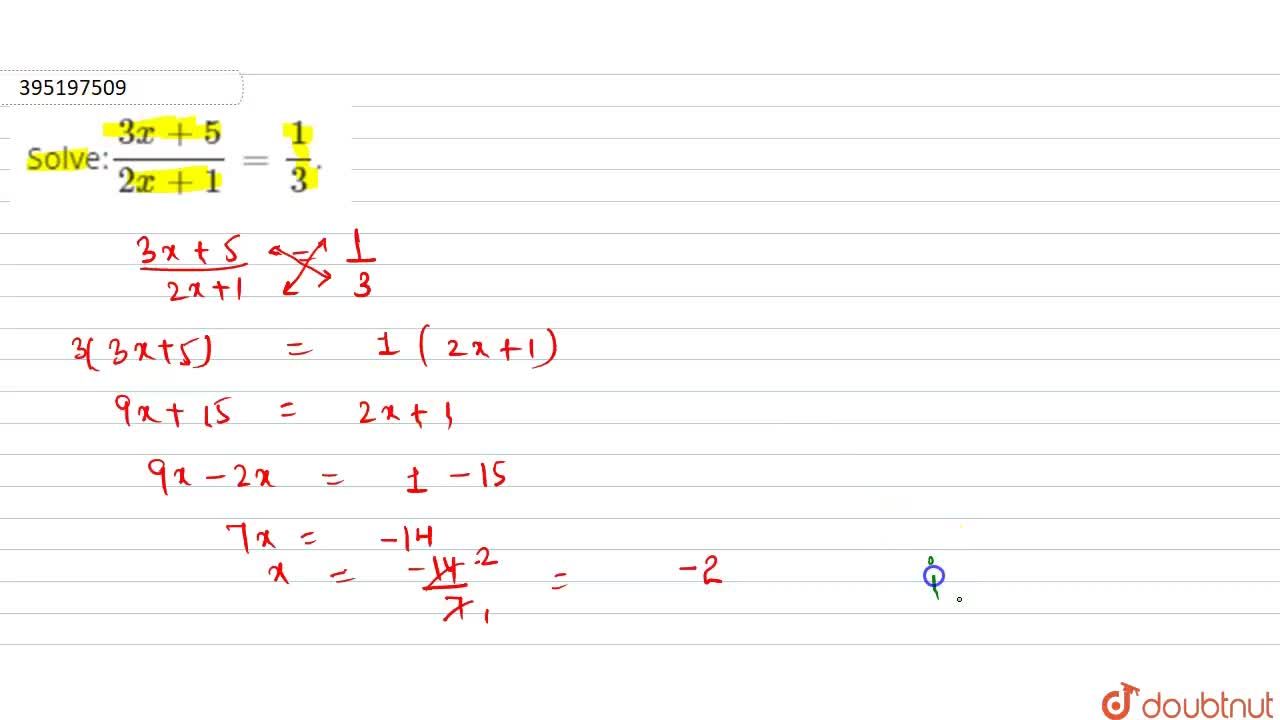 395197509
Solve: (3x + 5)/(2x + 1) = 1/3.
(3x + 5)/(2x + 1) = 1/3
3(3x+5) = 1 (2x+1)
9x + 15 = 2x + 1
9x - 2x = 1 - 15
7x = -14
x = -14/7 -2 1 = -2
doubtnut